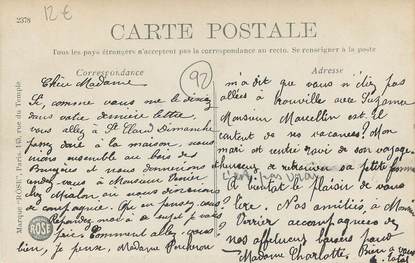 2378
12€
CARTE POSTALE
Tous les pays étrangers n'acceptent pas la correspondance au recto. Se renseigner à la poste
Correspondance
Adresse
92
Marque "ROSE", Paris, 145, rue du Temple
ROSE
Chère Madame
Si, comme vous me le disiez
dans votre dernière lettre,
vous allez à St Cloud Dimanche
à la maison, nous
irions ensemble au bois des
et nous donnerions
rendez vous à Monsieur
chez nous dînerions
de compagnie. Qu'en pensez vous
Répondez moi à ce sujet je vous
prie. Comment allez, vous
bien, je pense, Madame
m'a dit que vous n'étiez pas
allées à trouville avec Suzanne
Monsieur Marcellin est. Il
content de ses vacances? Mon
mari est rentré ravi de son voyage
heureux de retrouver sa petite femme
A bientôt le plaisir de vous
lire. Nos amitiés à Monsieur
Verrier accompagnées de
nos affectueux baisers pour
Madame Charlotte, Bien à vous